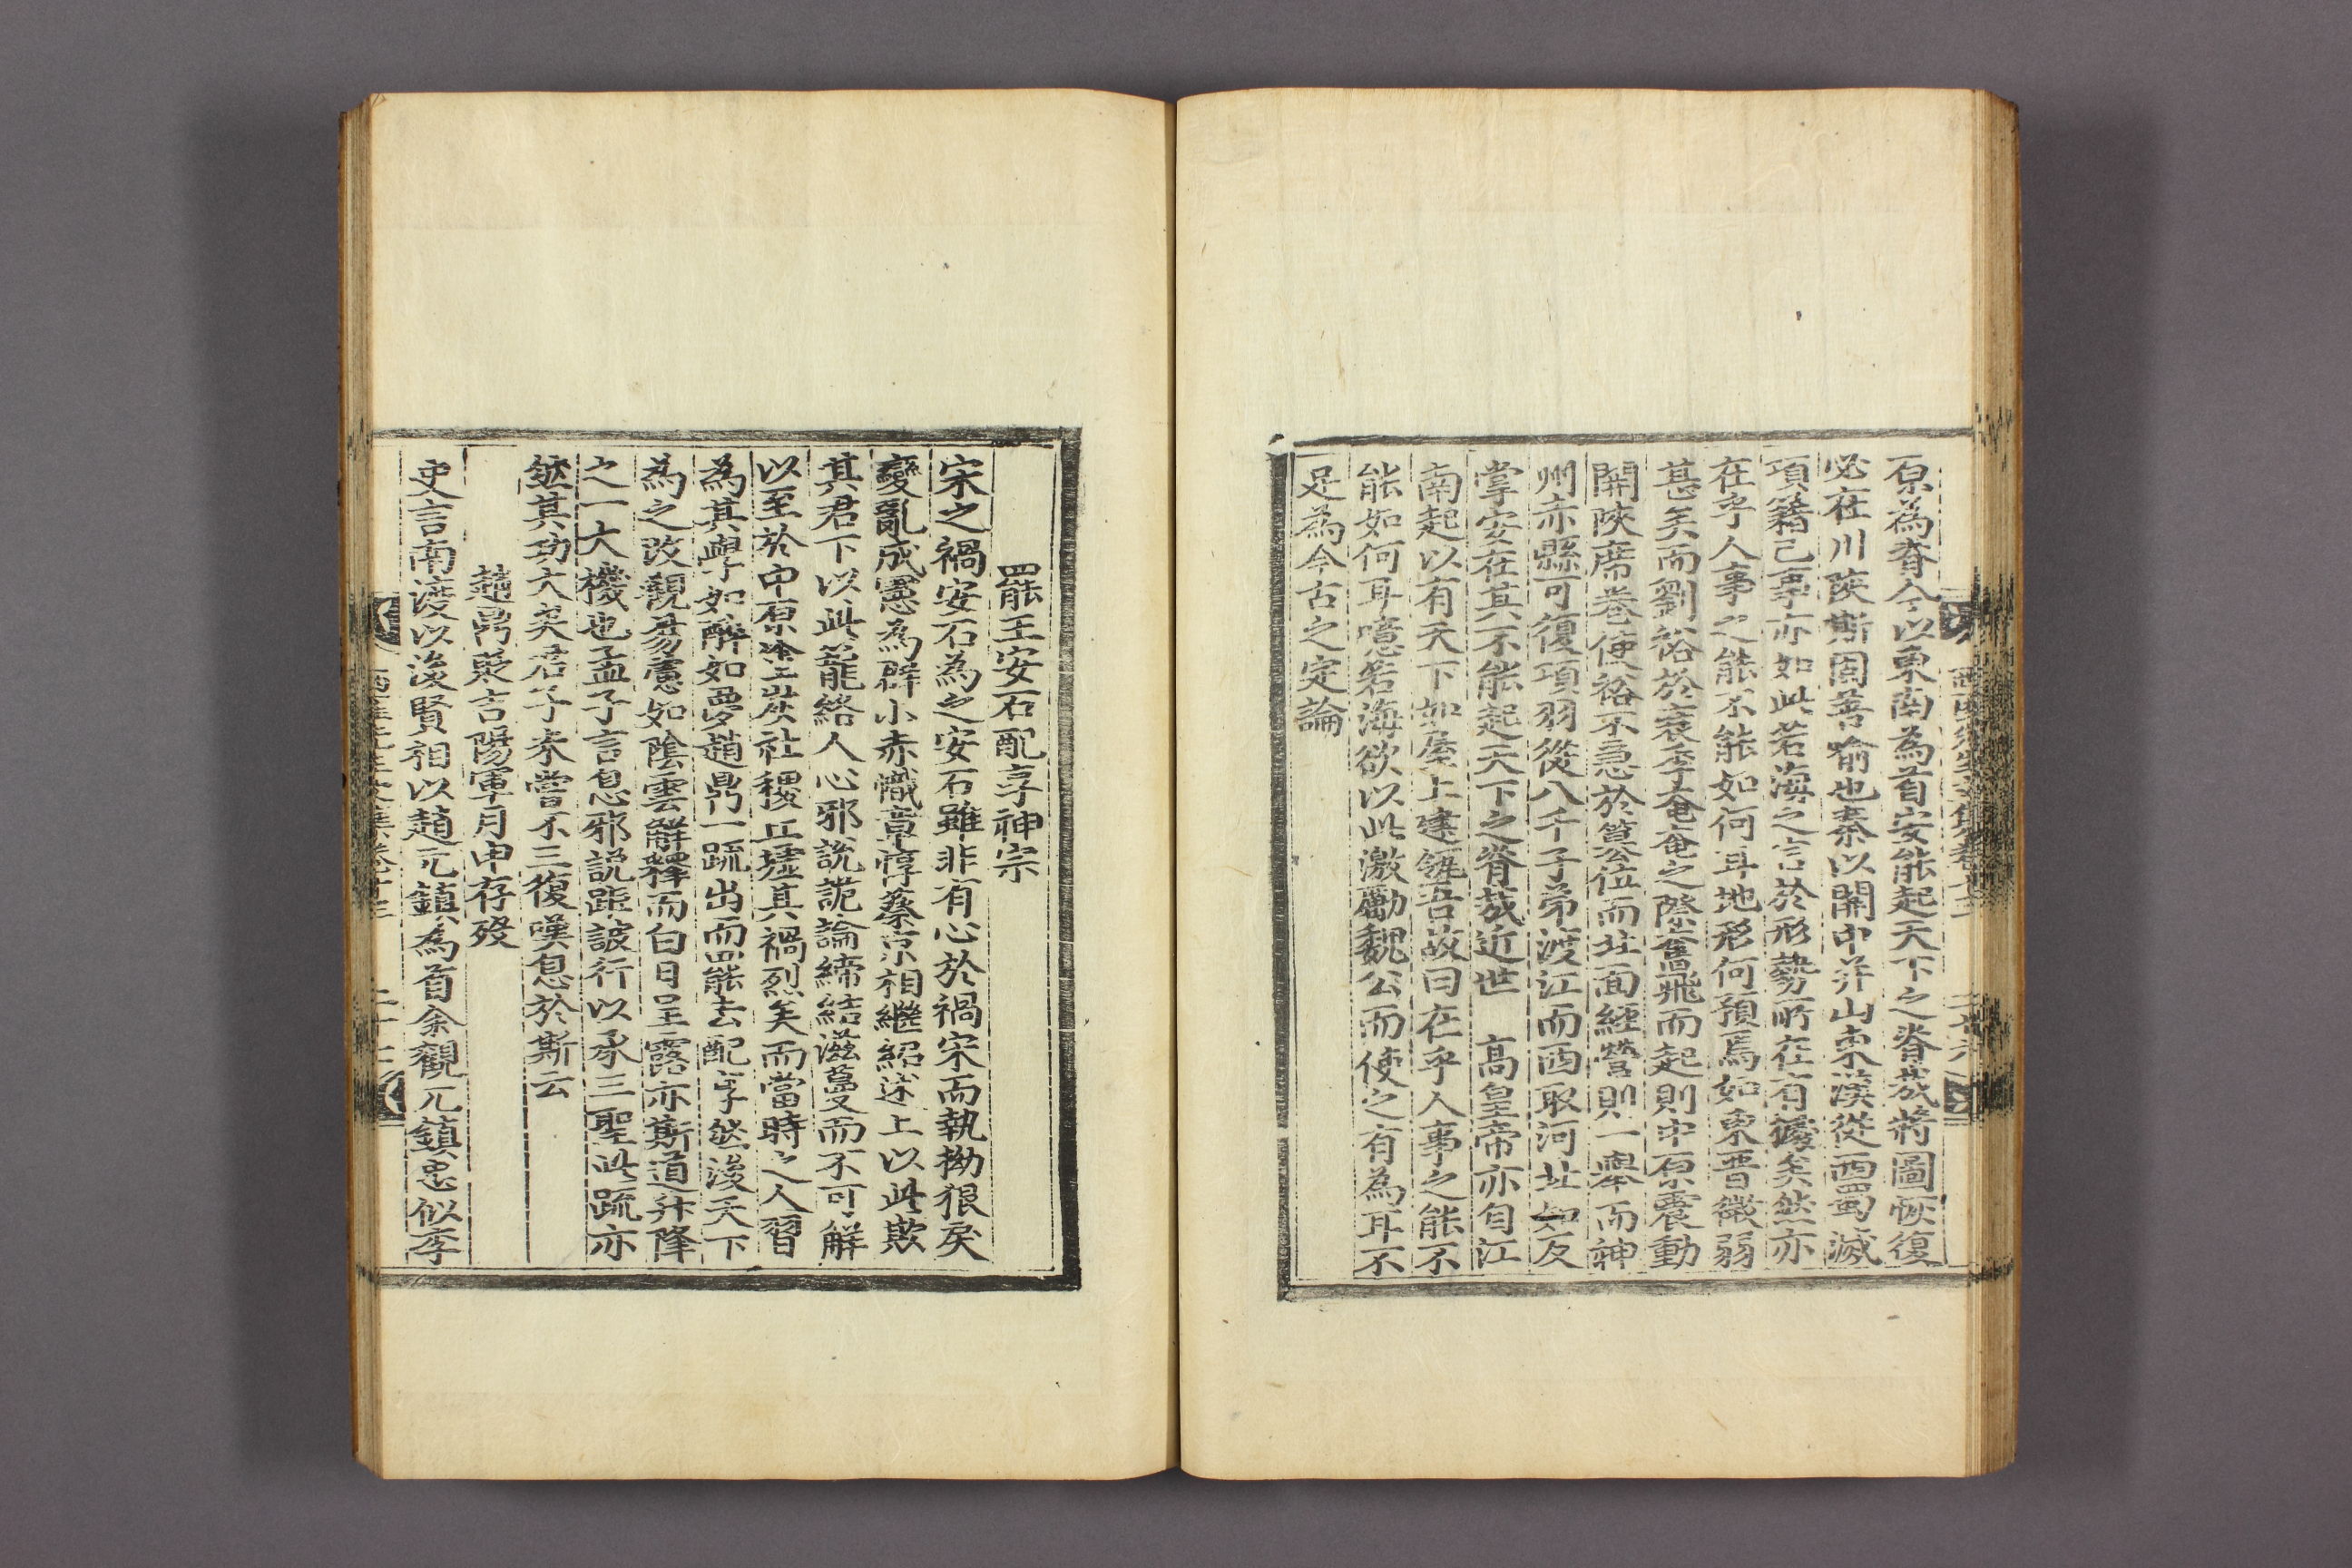 原為脊今以東南為首安能起天下之脊哉將圖恢復
必在川陝斯固善喻也秦以關中并山東漢從西蜀滅
項籍已事亦如此若海之言於形勢所在有據矣然亦
在乎人事之能不能如何耳地形何預焉如東晋微弱
甚矣而劉裕於衰季奄奄之際奮飛而起則中原震動
關陝席卷使裕不急於簒位而北面經營則一舉而神
州赤縣可復項羽從八千子弟渡江而西取河北如反
掌安在其不能起天下之脊哉近世 高皇帝亦自江
南起以有天下如屋上建瓴吾故曰在乎人事之能不
能如何耳噫若海欲以此激勵魏公而使之有為耳不
足為今古之定論
罷王安石配享神宗
宋之禍安石為之安石雖非有心於禍宋而執拗狠戾
變亂成憲為群小赤幟章惇蔡京相繼紹述上以此欺
其君下以此籠絡人心邪說詭論締結滋蔓而不可解
以至於中原塗炭社稷丘墟其禍烈矣而當時之人習
為其學如醉如夢趙鼎一疏出而罷去配享然後天下
為之改觀易慮如陰雲解釋而白日呈露亦斯道升降
之一大機也孟子言息邪說距詖行以承三聖此疏亦
然其功大矣君子未嘗不三復嘆息於斯云
趙鼎疏言陽軍月申存歿
史言南渡以後賢相以趙元鎮為首余觀元鎮忠似李